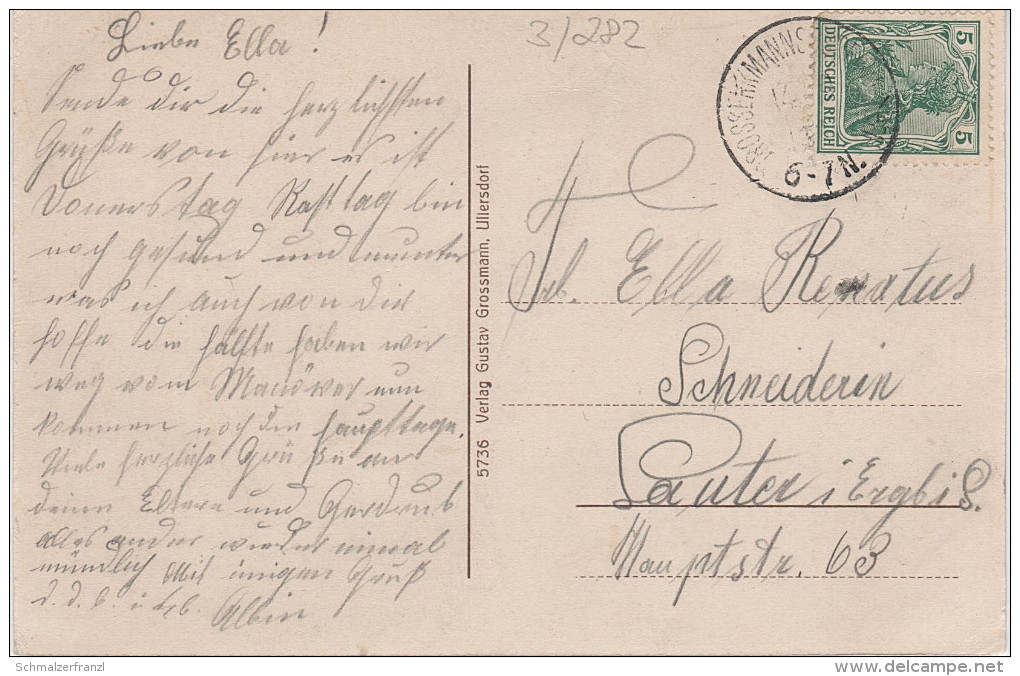 Liebe Ella!
Sende dir die herzlichsten
Grüße von hier es ist
Donerstag Rasttag bin
noch gesund und munter
was ich auch von dir
hoffe die hälfte haben wir
weg vom Manöver nun
kommen noch die haupttage.
Viele herzliche Grüße an
deine Eltern und Gerdrub
alles ander wieder einmal
mündlich Mit innigen Gruß
Albin
3/282
5736 Verlag Gustav Grossmann, Ullersdorf
GROSSERKMANNS
6-7N.
DEUTSCHES REICH
5
5
Frl. Ella Renatus
Schneiderin
Lauter i Ergb i S.
Hauptstr. 63
Schmalzerfranzl
delcampe.net